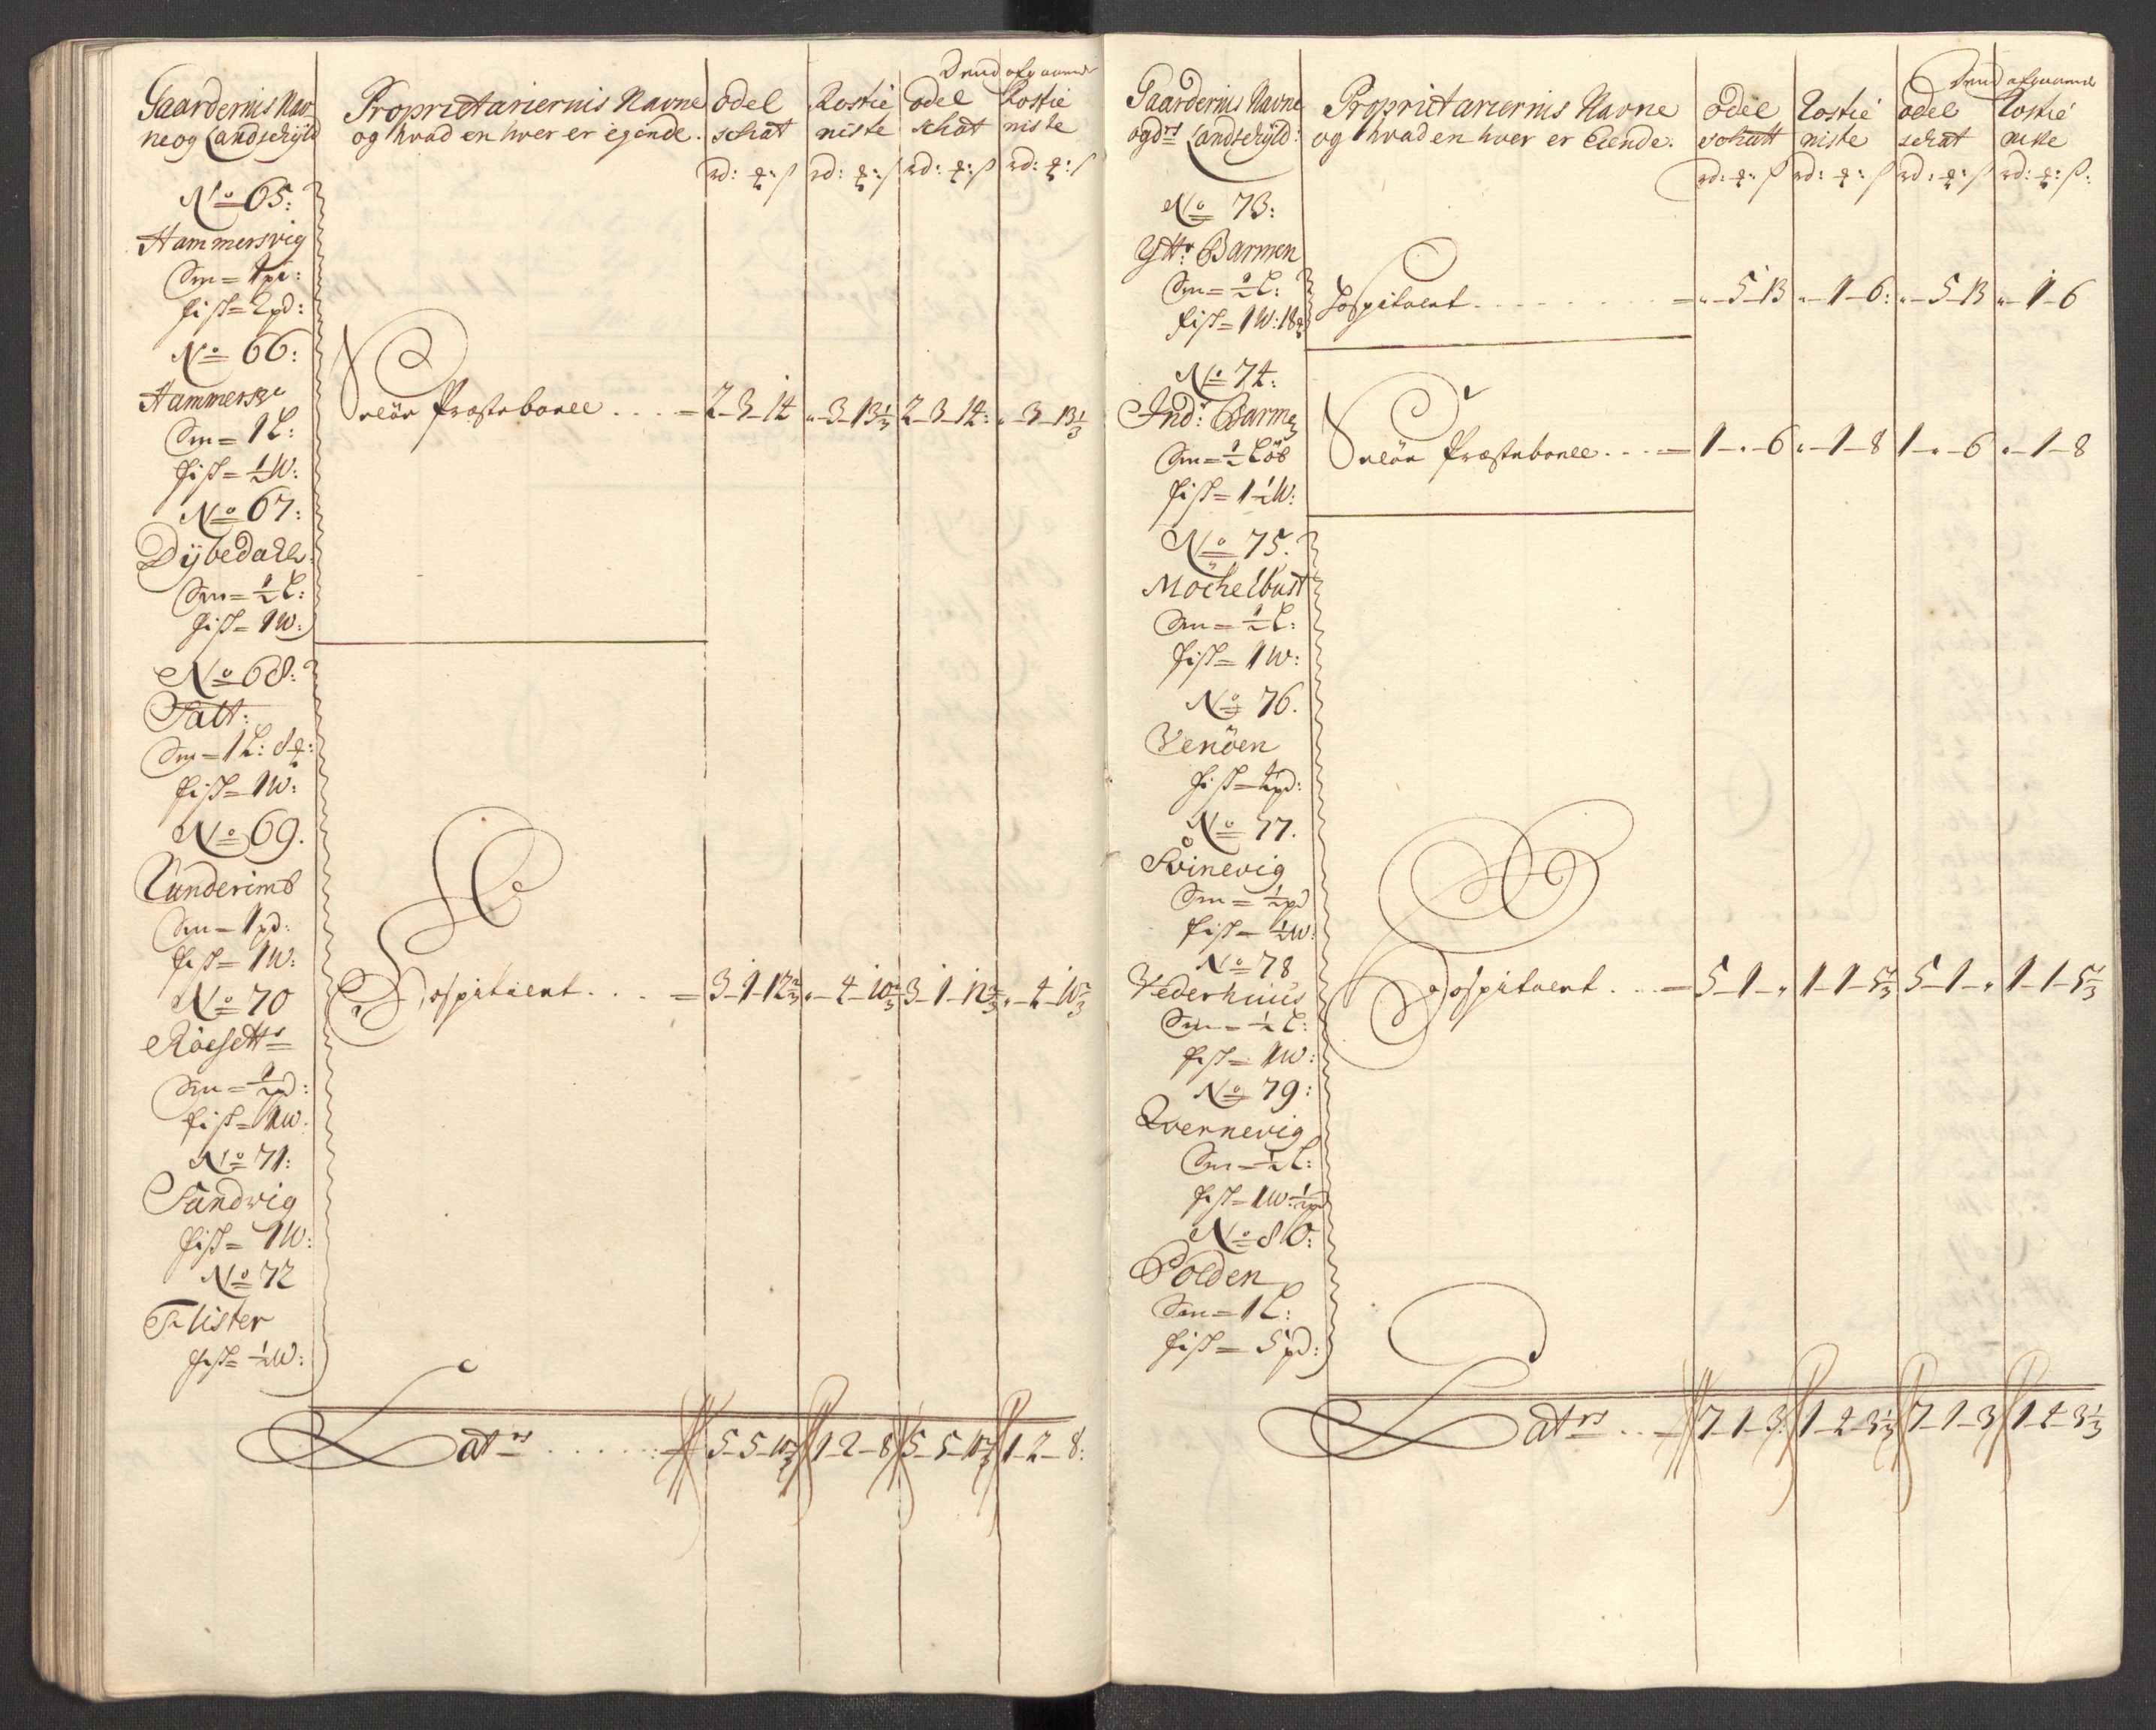 Dend afgaaende
Gaardernis Nav Proprietariernis Navne odel Rostie odel Rostie
ne og Landschÿld og hvad en hver er ejende. schat niste schat niste
rd: ꝶ: ß rd: ꝶ: ß rd: ꝶ: ß rd: ꝶ: ß
No 65:
Hammersvig
Sm = 1 pd:
fisk = 2 pd:
No 66:
Sm = 1 L:
Præstebolle . . . . = 2-3-14 „-3-13⅓ 2-3-14: „-3-13⅓
fisk = ½ W:
No 67:
Dÿbedahls
Sm = ½ L:
fisk = 1 W:
No 68:
Satt:
Sm = 1 L: 8 ꝶ:
fisk = 1 W:
No 69.
Sunderimb
Sm = 1 pd:
fisk = 1 W:
No 70
Hospitalet . . . = 3-1-12⅔ „-4-10⅔ 3-1-12⅔ „-4-10⅔
Röesettr
Sm = ½ pd:
fisk = 1 W:
No 71:
Sandvig
fisk = 1 W:
No 72
Flister
fisk = ½ W:
Latrs . . . . . . . 5-5-10⅔ 1-2-8 5-5-10⅔ 1-2-8:
Dend afgaaende
Gaardernis Navne Proprietariernis Navne odel Rostie odel Rostie
og drs Landschÿld: og hvad en hver er Eiende. schatt niste schat niste
rd: ꝶ: ß rd: ꝶ: ß rd: ꝶ: ß rd: ꝶ: ß:
No 73:
Ÿttr Barmen
Sm = ½ L:
Hospitalet . . . . . . . = „-5-13 „-1-6: „-5-13 „-1-6
fisk = 1 W: 18 ꝶ
No 74:
Indr Barmen
Sm = ½ Löb
Præstebolle . . . = 1-„-6 „-1-8 1-„-6 „-1-8
fisk = 1½ W:
No 75.
Möchelbust
Sm = ½ L:
fisk = 1 W:
No 76.
Venöen
fisk = ½ pd:
No 77.
Svinevig
Sm = ½ pd
fisk = ½ W:
No 78
Vederhuus
Hospitalet . . . = 5-1-„ 1-1-5⅓ 5-1-„ 1-1-5⅓
Sm = ½ L:
fisk = 1 W:
No 79:
Qvernevig
Sm = ½ L:
fisk = 1 W: ½ pd
No 80:
Polden
Sm = 1 L:
fisk = 5 pd:
Latrs . . = 7-1-3 1-2-3⅓ 7-1-3 1-2-3⅓